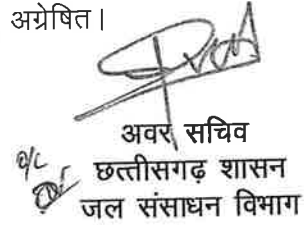 अग्रेषित।
अवर सचिव
o/c
छत्तीसगढ़ शासन
जल संसाधन विभाग